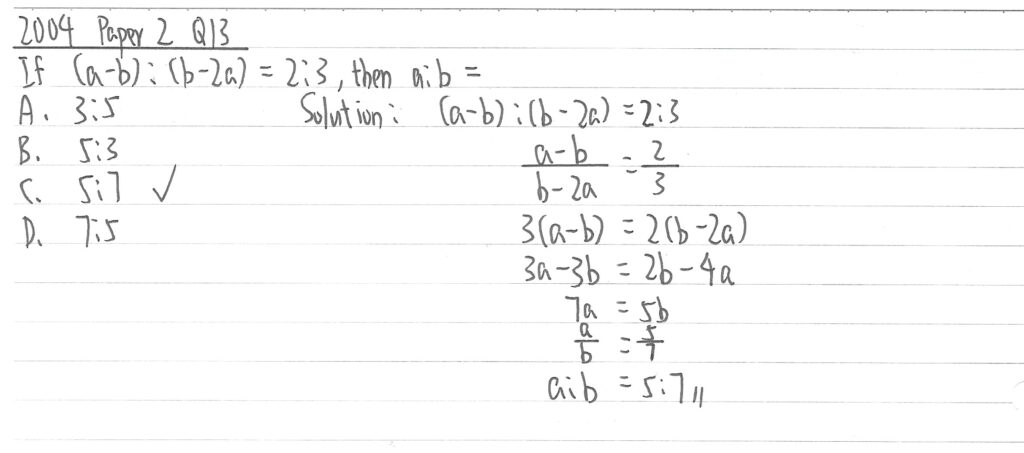 2004 Paper 2 Q13
If (a-b):(b-2a) = 2:3, then a:b =
A. 3:5
Solution: (a-b):(b-2a) = 2:3
B. 5:3
a-b / b-2a = 2/3
C. 5:7 ✓
D. 7:5
3(a-b) = 2(b-2a)
3a-3b = 2b-4a
7a = 5b
a/b = 5/7
a:b = 5:7 //